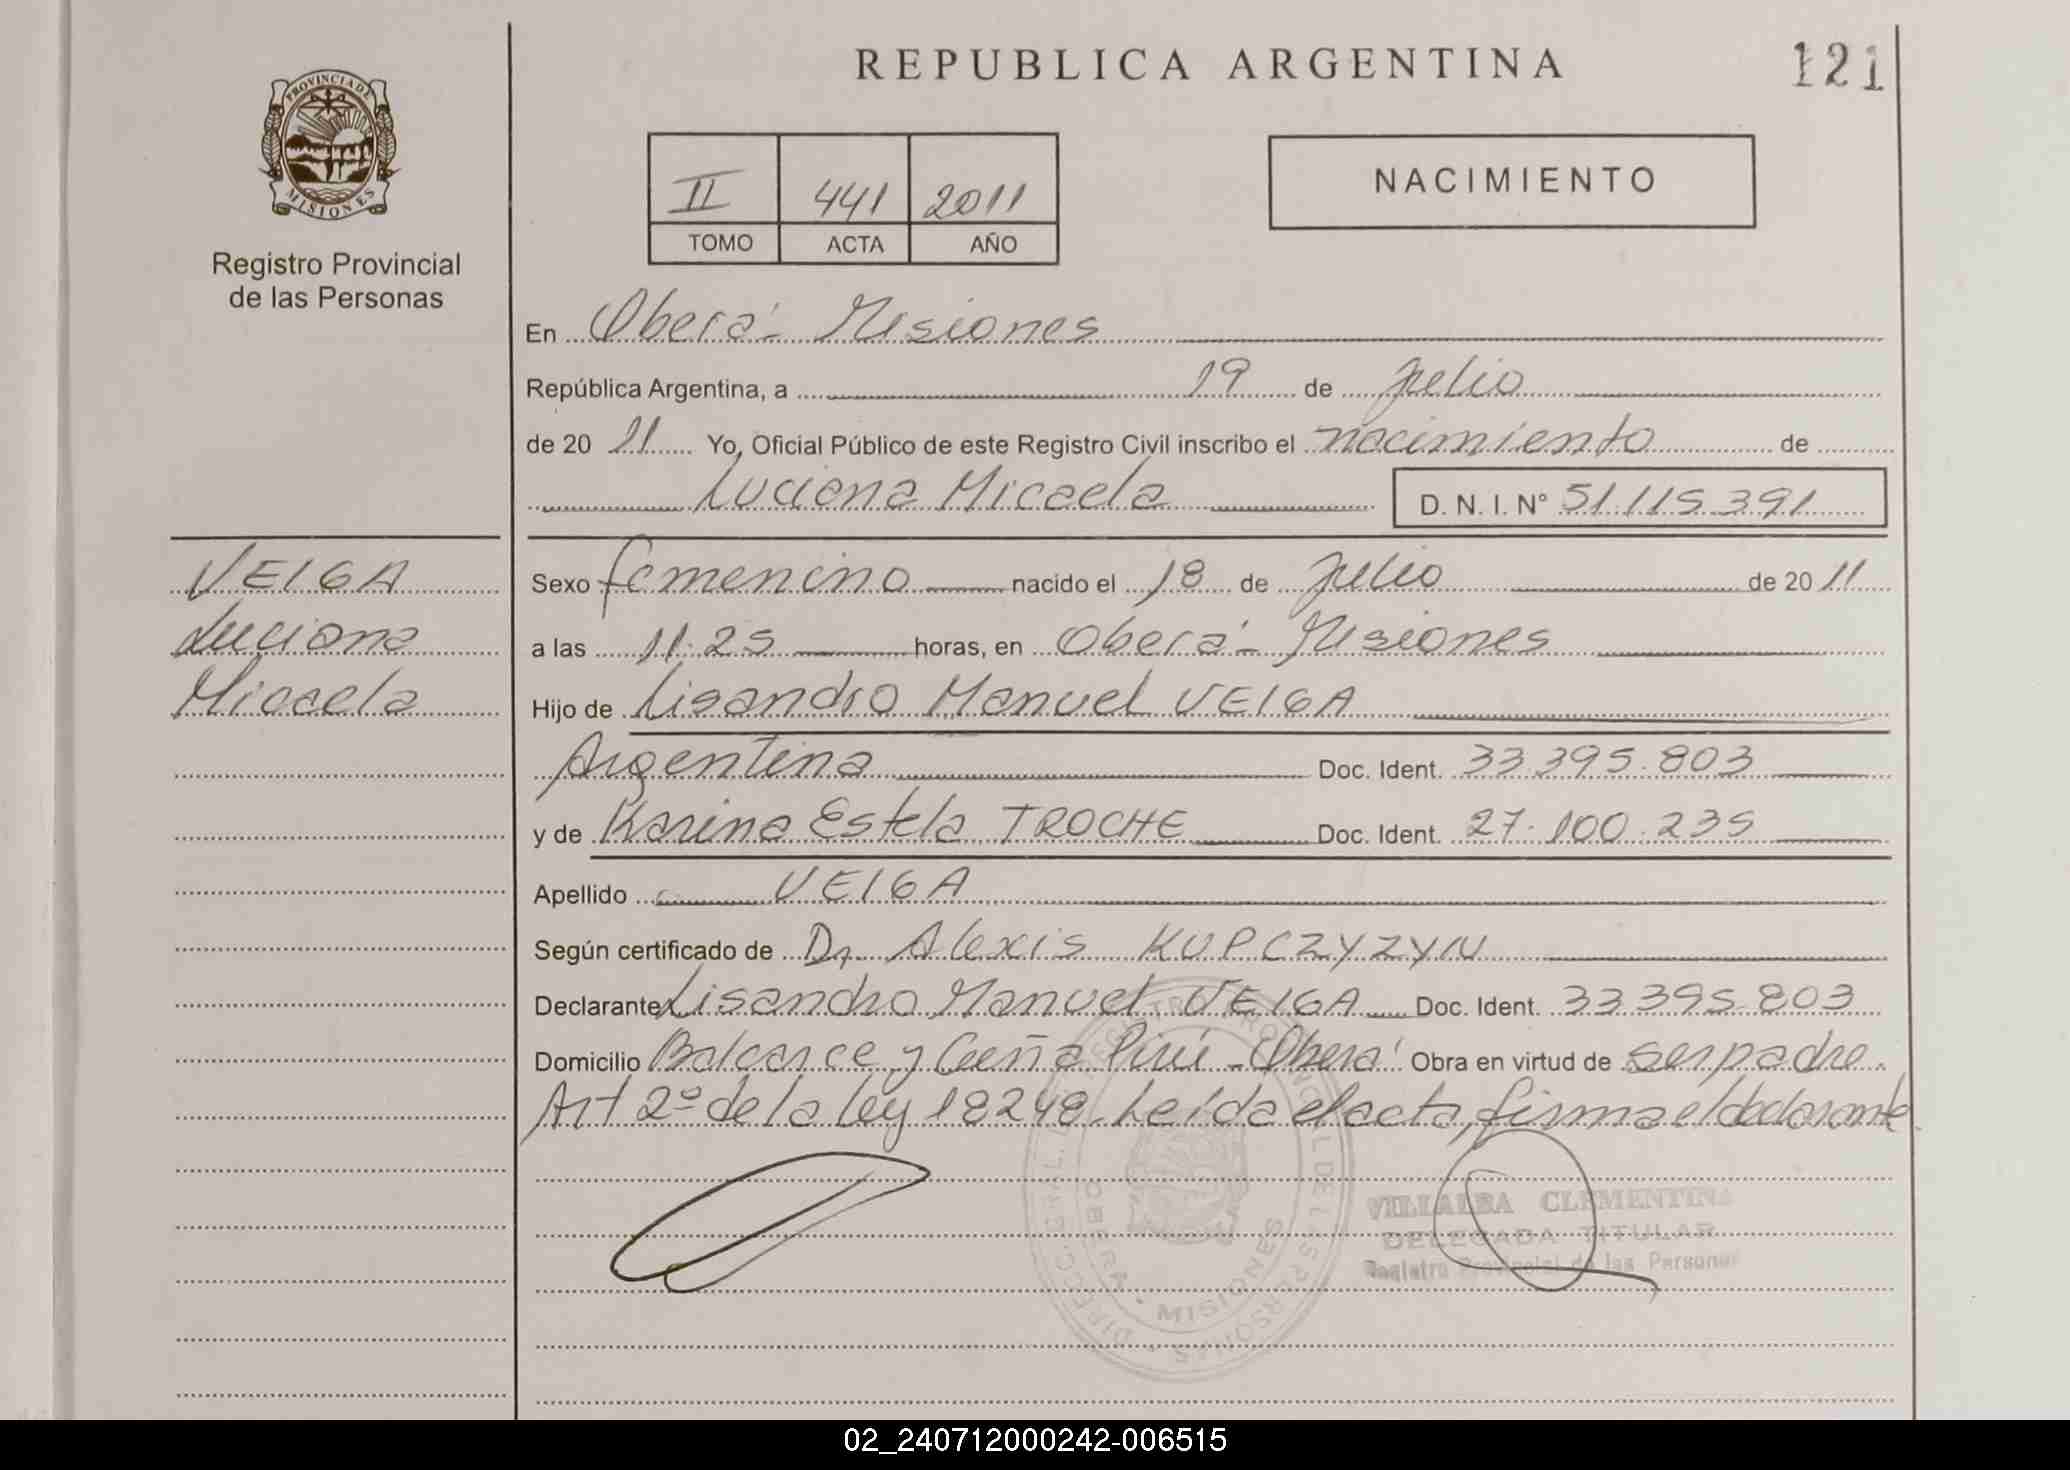 REPUBLICA ARGENTINA
121
PROVINCIA DE
MISIONES
Registro Provincial
de las Personas
II 441 2011
TOMO ACTA AÑO
NACIMIENTO
En Oberá - Misiones
República Argentina, a 19 de Julio
de 20 11 Yo, Oficial Público de este Registro Civil inscribo el nacimiento de
Luciana Micaela D. N. I. Nº 51.115.391
VEIGA
Luciana
Micaela
Sexo femenino nacido el 18 de Julio de 20 11
a las 11.25 horas, en Oberá - Misiones
Hijo de Lisandro Manuel VEIGA
Argentina Doc. Ident. 33.395.803
y de Karina Estela TROCHE Doc. Ident. 27.100.235
Apellido VEIGA
Según certificado de Dr. Alexis KUPCZYZYN
Declarante Lisandro Manuel VEIGA Doc. Ident. 33.395.803
Domicilio Balcarce y Ceña Pirú - Oberá Obra en virtud de ser padre.
Art 2º de la ley 18248. Leída el acta, firma el declarante.
VILLALBA CLEMENTINA
DELEGADA TITULAR
Registro Provincial de las Personas
DIRECC. GRAL. DE REGISTRO PROVINCIAL DE LAS PERSONAS
OBERA - MISIONES
02_240712000242-006515